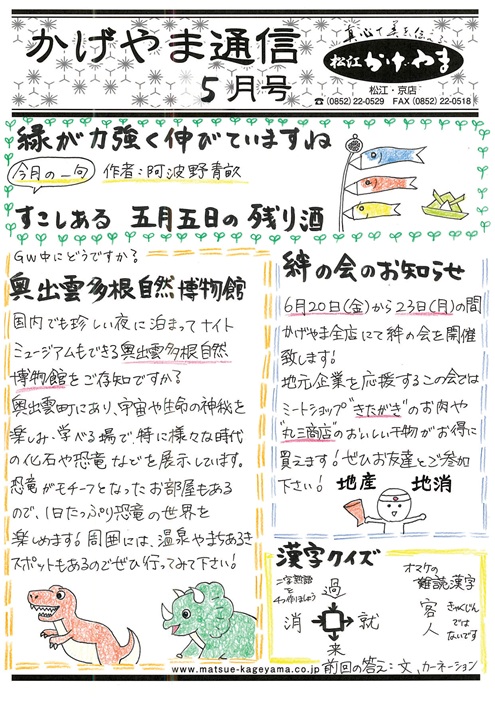 かげやま通信
5月号
真心で美を伝
松江 かげやま
松江・京店
☎(0852)22-0529 FAX(0852)22-0518
緑が力強く伸びていますね
今月の一句 作者:阿波野青畝
すこしある 五月五日の残り酒
GW中にどうですか?
奥出雲多根自然博物館
国内でも珍しい夜に泊まってナイト
ミュージアムもできる奥出雲多根自然
博物館をご存知ですか?
奥出雲町にあり、宇宙や生命の神秘を
楽しみ、学べる場で、特に様々な時代
の化石や恐竜などを展示しています。
恐竜がモチーフとなったお部屋もある
ので、1日たっぷり恐竜の世界を
楽しめます!周囲には、温泉やまちあるき
スポットもあるのでぜひ行ってみて下さい!
絆の会のお知らせ
6月20日(金)から23日(月)の間
かげやま全店にて絆の会を開催
致します!
地元企業を応援するこの会では
ミートショップ"きたがき"のお肉や
"丸三商店"のおいしい干物がお得に
買えます!ぜひお友達とご参加
下さい! 地産 地消
漢字クイズ
二字熟語
を
4つ作りましょう
過
消 就
来
オマケの
難読漢字
客人
きゃくじん
では
ないです
前回の答え:文、カーネーション
www.matsue-kageyama.co.jp